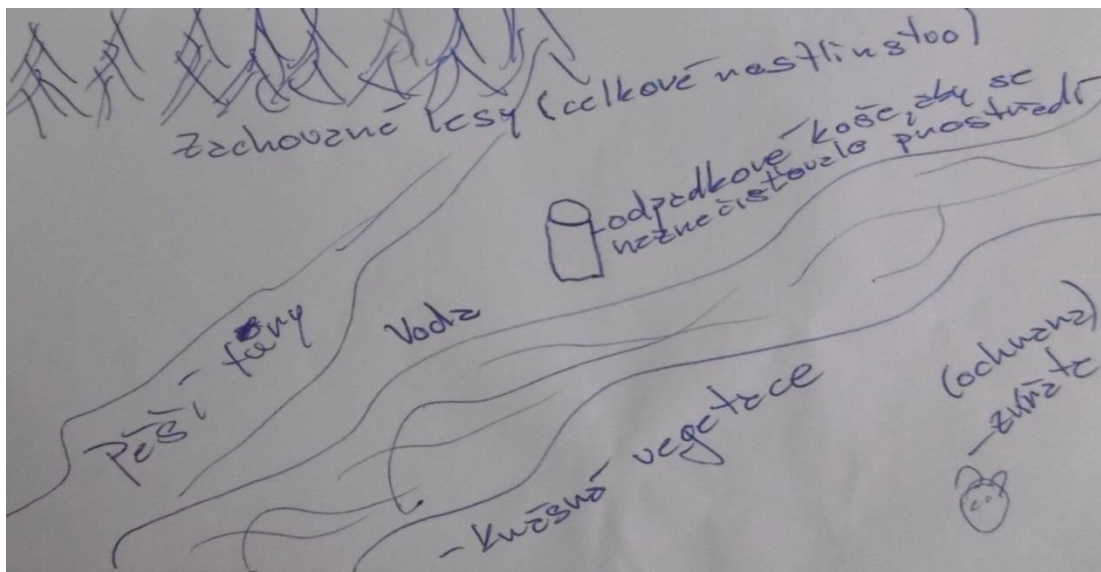 Zachované lesy (celkové rostlinstvo)
odpadkové koše, aby se
neznečistovalo prostředí
Pěší túry
Voda
- Krásná vegetace
(ochrana)
zvířata